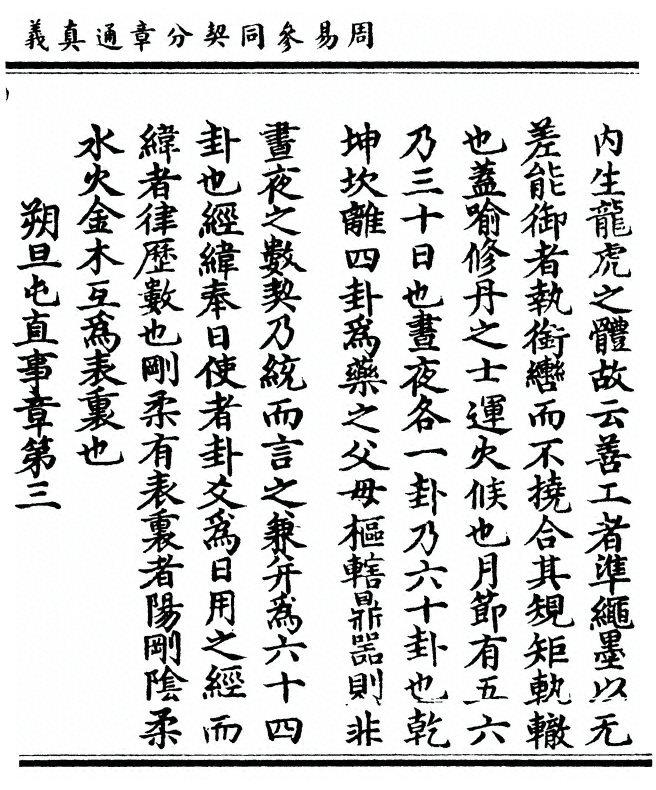 周易參同契分章通真義
内生龍虎之體故云善工者準繩墨以无
差能御者執銜轡而不撓合其規矩軌轍
也蓋喻修丹之士運火候也月節有五六
乃三十日也晝夜各一卦乃六十卦也乾
坤坎離四卦爲藥之父母樞轄鼎器則非
晝夜之數契乃統而言之兼并爲六十四
卦也經緯奉日使者卦爻爲日用之經而
緯者律歷數也剛柔有表裏者陽剛陰柔
水火金木互爲表裏也
朔旦屯直事章第三